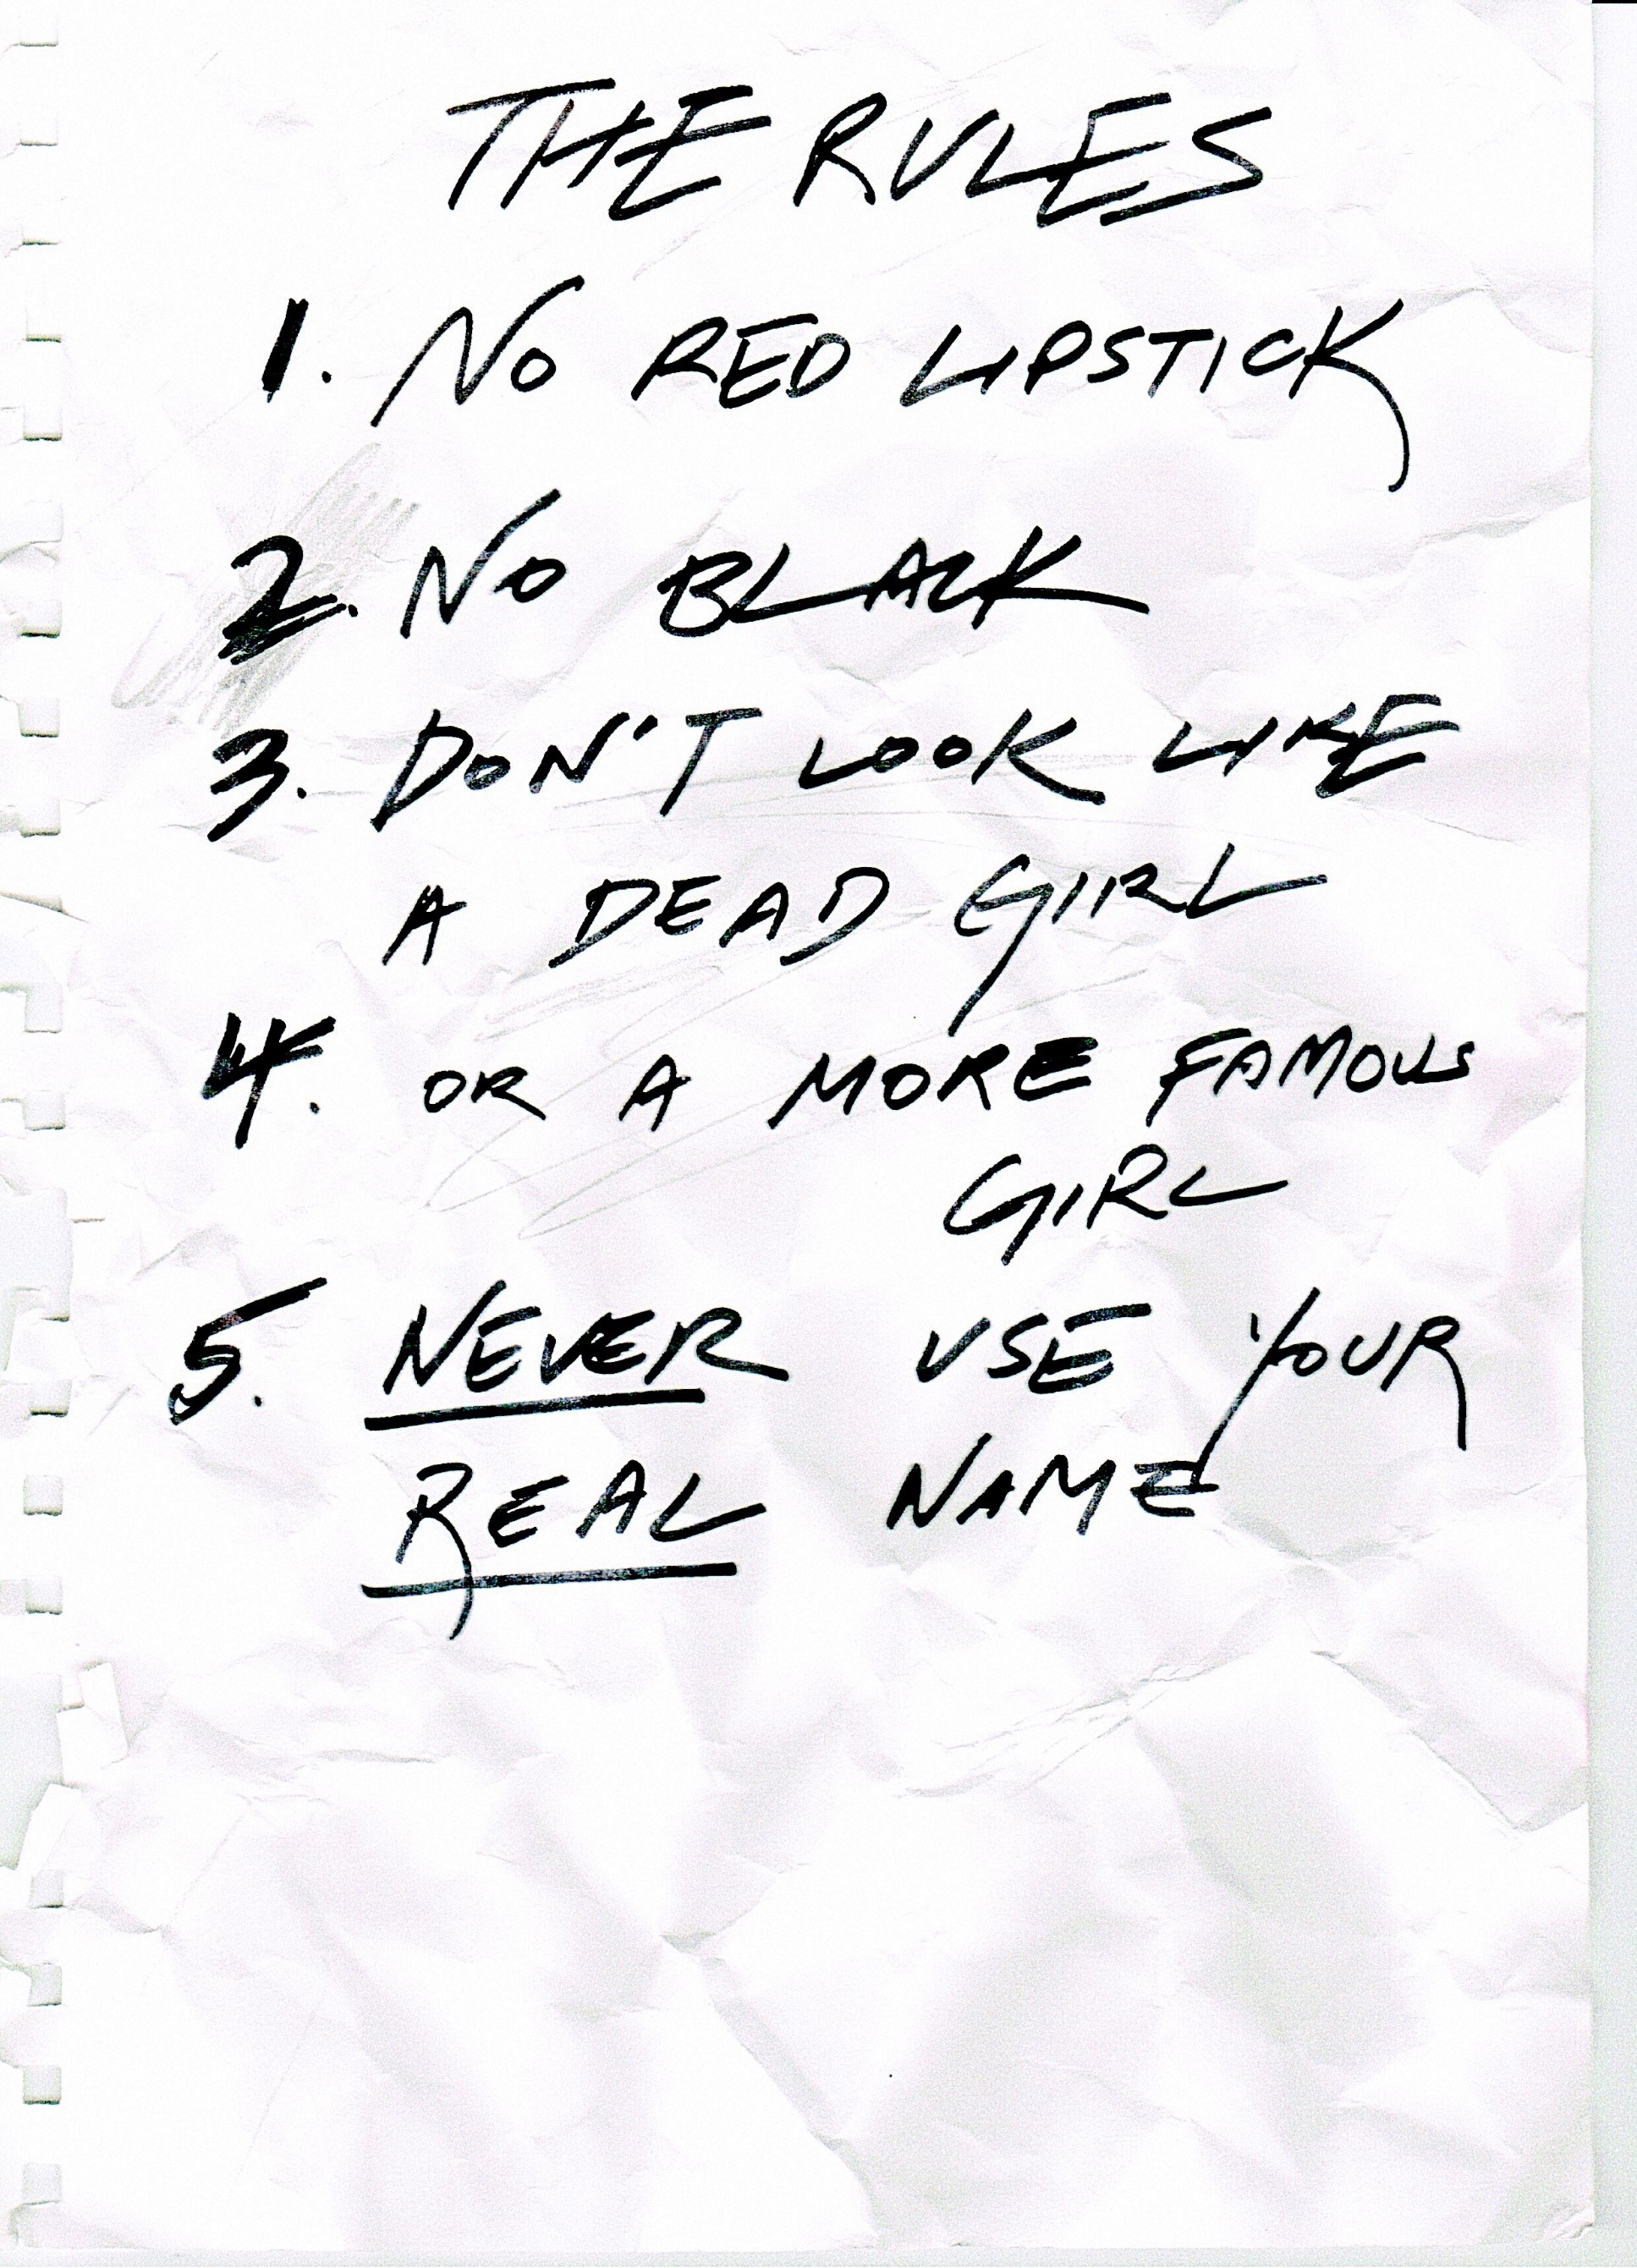 THE RULES
1. NO RED LIPSTICK
2. NO BLACK
3. DON'T LOOK LIKE
A DEAD GIRL
4. OR A MORE FAMOUS
GIRL
5. NEVER USE YOUR
REAL NAME